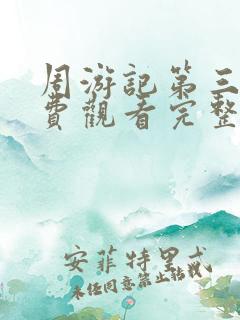 周游記第三
費觀看完整
安菲特里忒
未经同意禁止转载